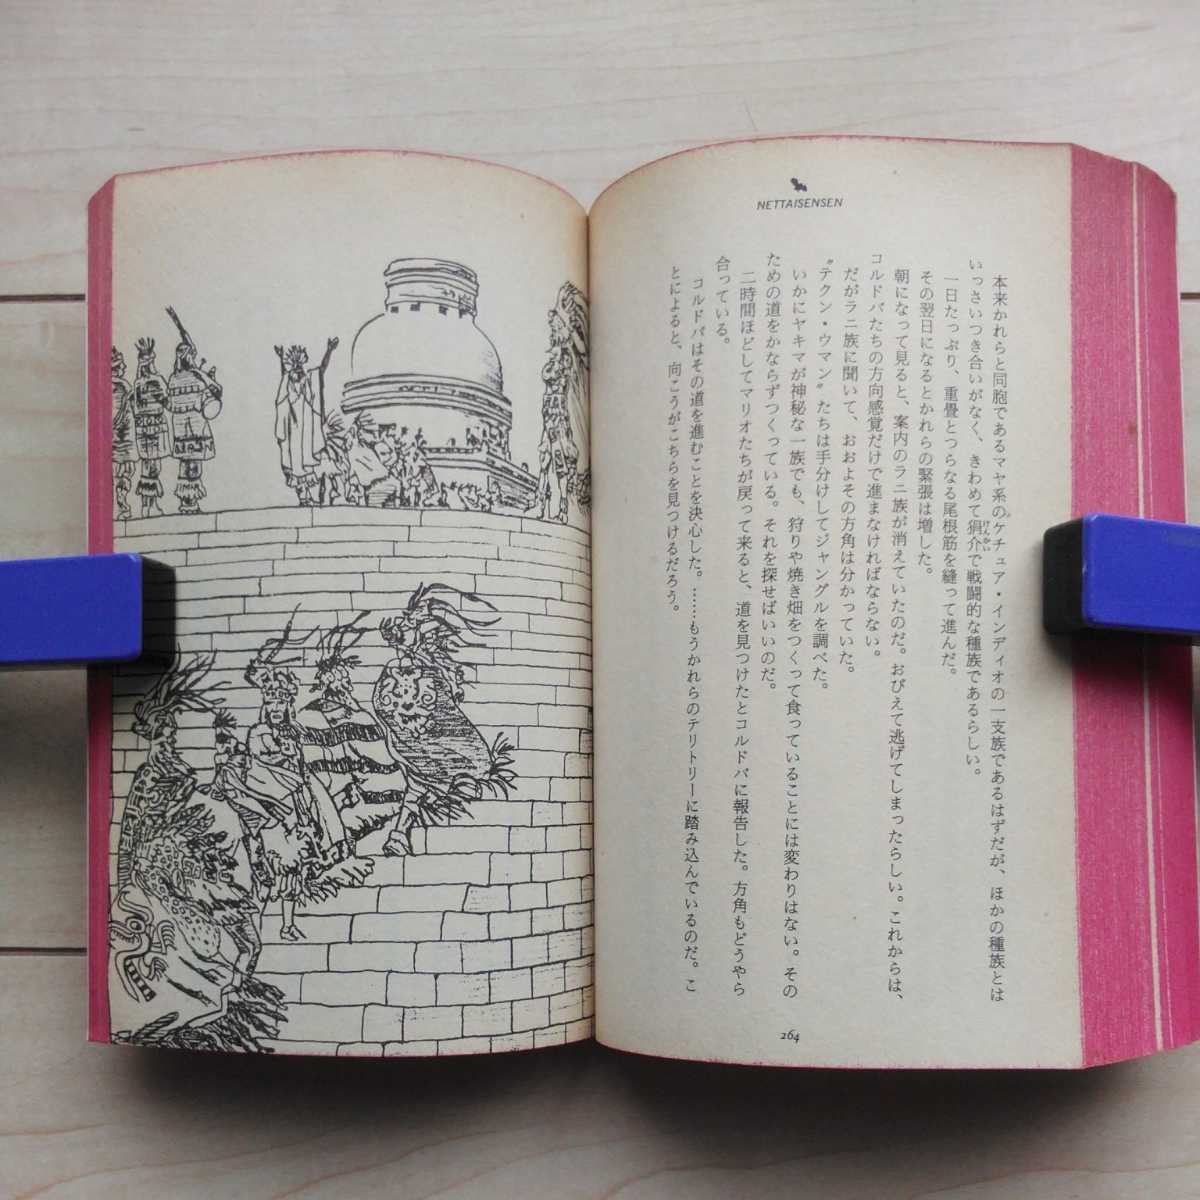 NETTAISENSEN
本来かれらと同胞であるマヤ系のケチュア・インディオの一支族であるはずだが、ほかの種族とは
いっさいつき合いがなく、きわめて狷介で戦闘的な種族であるらしい。
けんかい
一日たっぷり、重畳とつらなる尾根筋を縫って進んだ。
その翌日になるとかれらの緊張は増した。
朝になって見ると、案内のラニ族が消えていたのだ。おびえて逃げてしまったらしい。これからは、
コルドバたちの方向感覚だけで進まなければならない。
だがラニ族に聞いて、おおよその方角は分かっていた。
〝テクン・ウマン〟たちは手分けしてジャングルを調べた。
いかにヤキマが神秘な一族でも、狩りや焼き畑をつくって食っていることには変わりはない。その
ための道をかならずつくっている。それを探せばいいのだ。
二時間ほどしてマリオたちが戻って来ると、道を見つけたとコルドバに報告した。方角もどうやら
合っている。
コルドバはその道を進むことを決心した。……もうかれらのテリトリーに踏み込んでいるのだ。こ
とによると、向こうがこちらを見つけるだろう。
264